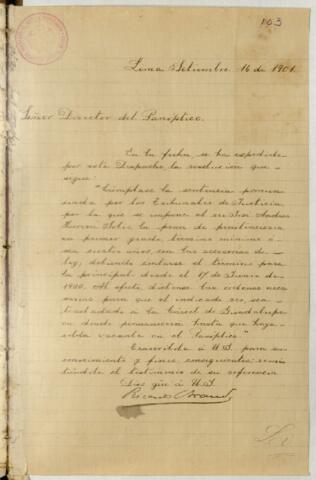 163
Lima Setiembre 16 de 1901.
Señor Director del Panóptico.
En la fecha, se ha expedido
por este Despacho, la resolución que
sigue:
"Cúmplase la sentencia pronun
ciada por los Tribunales de Justicia
por la que se impone al reo Andrés
la pena de penitenciaría
en primer grado, término mínimo ó
sea cuatro años, con las accesorias de
ley, debiendo contarse el término para
la principal desde el 17 de Junio de
1900. Al efecto, díctense las órdenes nece
sarias para que el indicado reo, sea
trasladado á la Cárcel de Guadalupe
en donde permanecerá hasta que haya
celda vacante en el Panóptico."
Trascríbola á U.S. para su
conocimiento y fines consiguientes; remi
tiéndole el testimonio de su referencia
Dios gue á U.S.
Ricardo